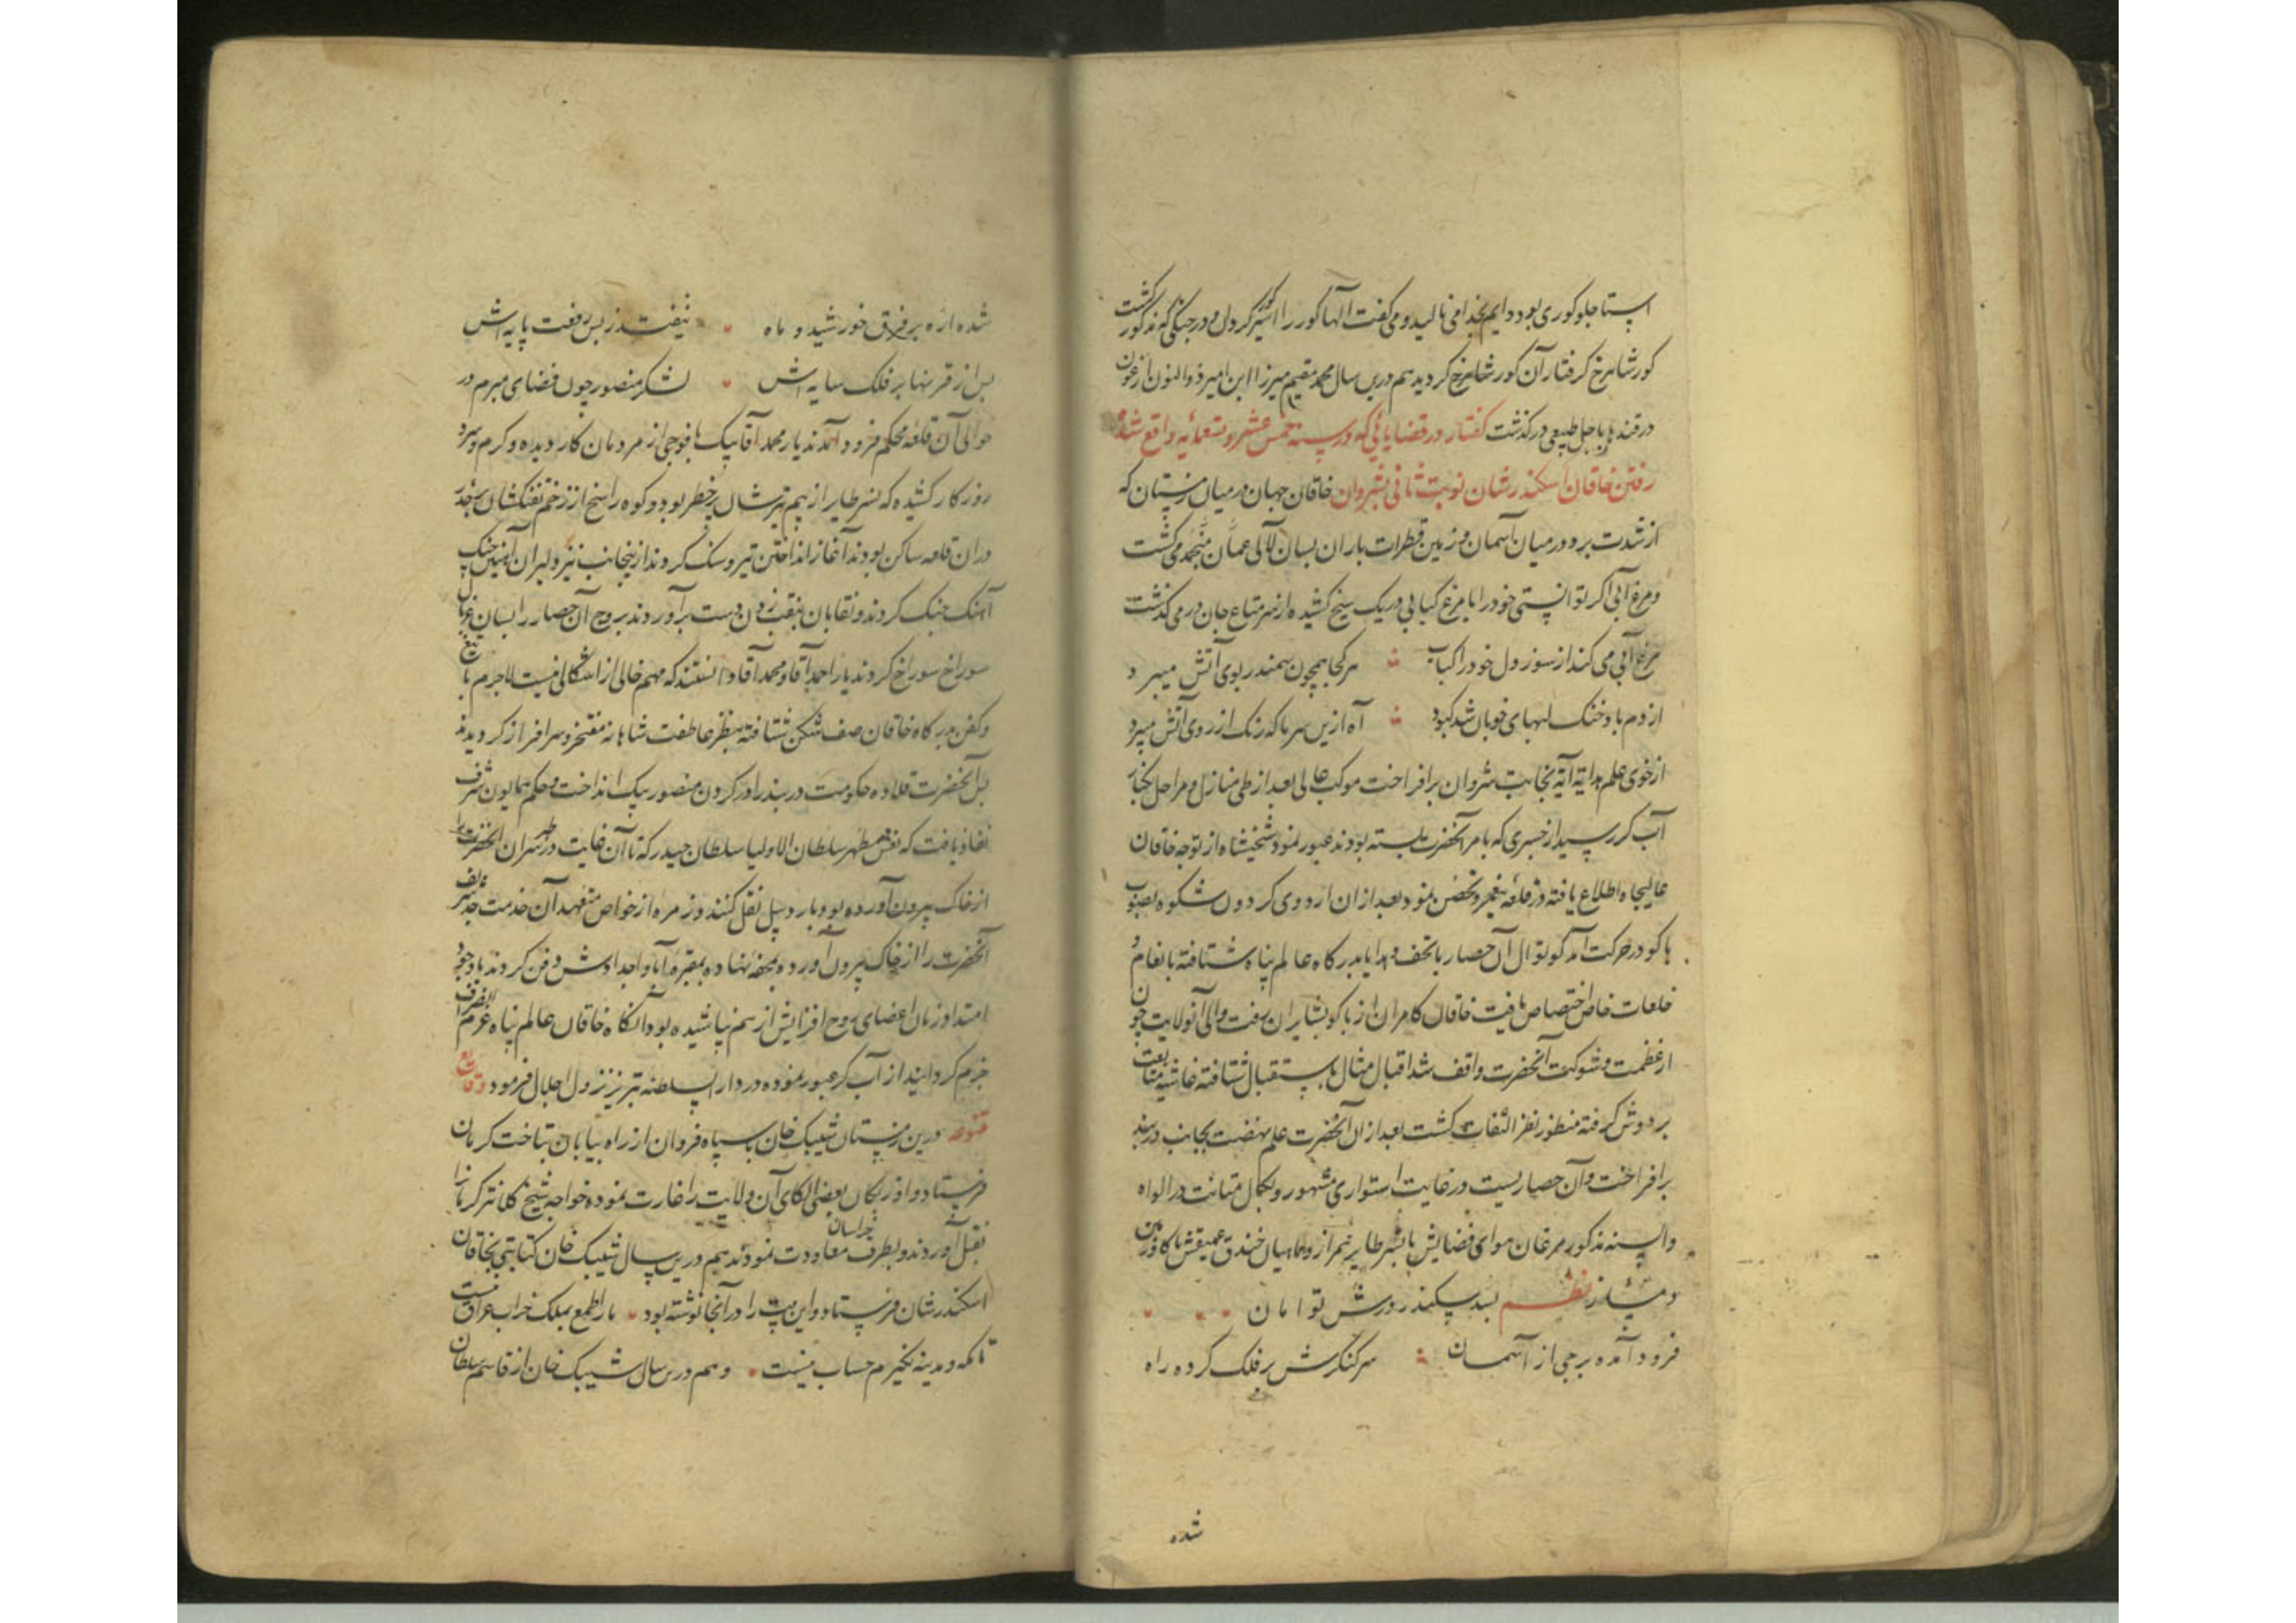 استاجلو کوری بود دایم بخدا می نالید و می گفت الها کور را اسیر کور کردی و در جنگی که مذکور گشت
کور شاهرخ گرفتار آن کور شاهرخ گردید هم درین سال محمد مقیم میرزا ابن امیر ذوالنون ارغون
در قندهار باجل طبیعی درگذشت گفتار در قضایائی که در سنه خمس عشر و تسعمائه واقع شده
رفتن خاقان اسکندر شان نوبت ثانی بشروان خاقان جهان در میان زمستان که
از شدت برد در میان آسمان و زمین قطرات باران بسان لآلی عمان منجمد می گشت
و مرغ آبی اگر توانستی خود را با مرغ کبابی در یک سیخ کشیده از سر متاع جان در می گذشت
مرغ آبی می کند از سوز دل خود را کباب هر کجا همچون سمندر بوی آتش میبرد
از دم باد خنک لبهای خوبان شد کبود آه ازین سرما که رنگ از روی آتش میبرد
از خوی علم هدایة آیة بجانب شروان برافراخت موکب عالی بعد از طی منازل و مراحل بکنار
آب کر رسید از جسری که بامر آنحضرت بسته بودند عبور نمود شیخشاه از توجه خاقان
عالیجاه اطلاع یافته در قلعه بیغرد تحصن نمود بعد از ان اردوی گردون شکوه بصوب
باکو در حرکت آمد کوتوال آن حصار با تحف و هدایا بدرگاه عالم پناه شتافته بانعام و
خلعات خاص اختصاص یافت خاقان کامران از باکو بشابران رفت والی آنولایت چون
از عظمت و شوکت آنحضرت واقف شد اقبال مثال باستقبال شتافته غاشیه متابعت
بر دوش گرفته منظور نظر التفات گشت بعد از ان آنحضرت علم نهضت بجانب دربند
برافراخت و آن حصاریست در غایت استواری مشهور و بکمال متانت در افواه
و السنه مذکور مرغان هوای فضایش با نسر طایر همراز و ماهیان خندق عمیقش با گاو زمین
دمساز نظم بسد سکندر درش توامان
فرود آمده برجی از آسمان سر کنگرش بر فلک کرده راه
شده
شده اره بر فرق خورشید و ماه نیفتد ز بس رفعت پایه اش
پس از قرنها بر فلک سایه اش لشکر منصور چون قضای مبرم در
حوالی آن قلعه محکم فرود آمدند یار محمد آقا بیک با فوجی از مردمان کار دیده و گرم و سرد
روزگار کشیده که نسر طایر از بیم تیرشان پرخطر بود و کوه راسخ از زخم تفنگشان
دران قلعه ساکن بودند آغاز انداختن تیر و سنگ کردند ازینجانب نیز دلیران آهنین چنگ
آهنگ جنگ کردند و نقابان بنقب زدن دست برآوردند بروج آن حصار را بسان غربال
سوراخ سوراخ کردند یار احمد آقا و محمد آقا دانستند که مهم خالی از اشکالی نیست لاجرم با تیغ
و کفن بدرگاه خاقان صف شکن شتافته بنظر عاطفت شاهانه مفتخر و سرافراز گردیدند
آنحضرت قلاده حکومت دربند را در گردن منصور بیک انداخت و حکم همایون شرف
نفاذ یافت که نعش مطهر سلطان الاولیا سلطان حیدر که تا آن غایت در طبرسران آنحضرت را
از خاک بیرون آورده بود باردبیل نقل کنند و زمره از خواص متعهد آن خدمت جد شریف
آنحضرت را از خاک بیرون آورده بمحفه نهاده بمقبره آبا و اجدادش دفن کردند با وجود
امتداد زمان اعضای روح افزایش از هم نپاشیده بود آنگاه خاقان عالم پناه عزم انصراف
جزم گردانید از آب کر عبور نموده در دار السلطنه تبریز نزول اجلال فرمود وقایع
متنوعه درین زمستان شیبک خان با سپاه فروان از راه بیابان بتاخت کرمان
فرستاد و اوزبکان بعضی الکای آن ولایت را غارت نموده خواجه شیخ کلانتر کرمانرا
بقتل آوردند و بطرف خراسان معاودت نمودند هم درین سال شیبک خان کتابتی بخاقان
اسکندر شان فرستاد و این بیت را در آنجا نوشته بود ما را طمع بملک خراب عراق نیست
تا مکه و مدینه نگیرم حساب نیست و هم درین سال شیبک خان از قاسم سلطان